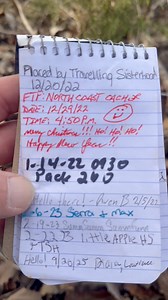 Placed by Travelling Sisterhood
12/20/22
FTF: NORTH COAST CACHER
DATE: 12/29/22
TIME: 4:50 P.M.
Merry Christmas!!! Ho! Ho! Ho!
Happy New Year!!
1-14-22 0930
Pack 260
Hello there! 2/5/23
6-6-23 Serra + Max
Little Apple HJ
Hello! 9/30/25